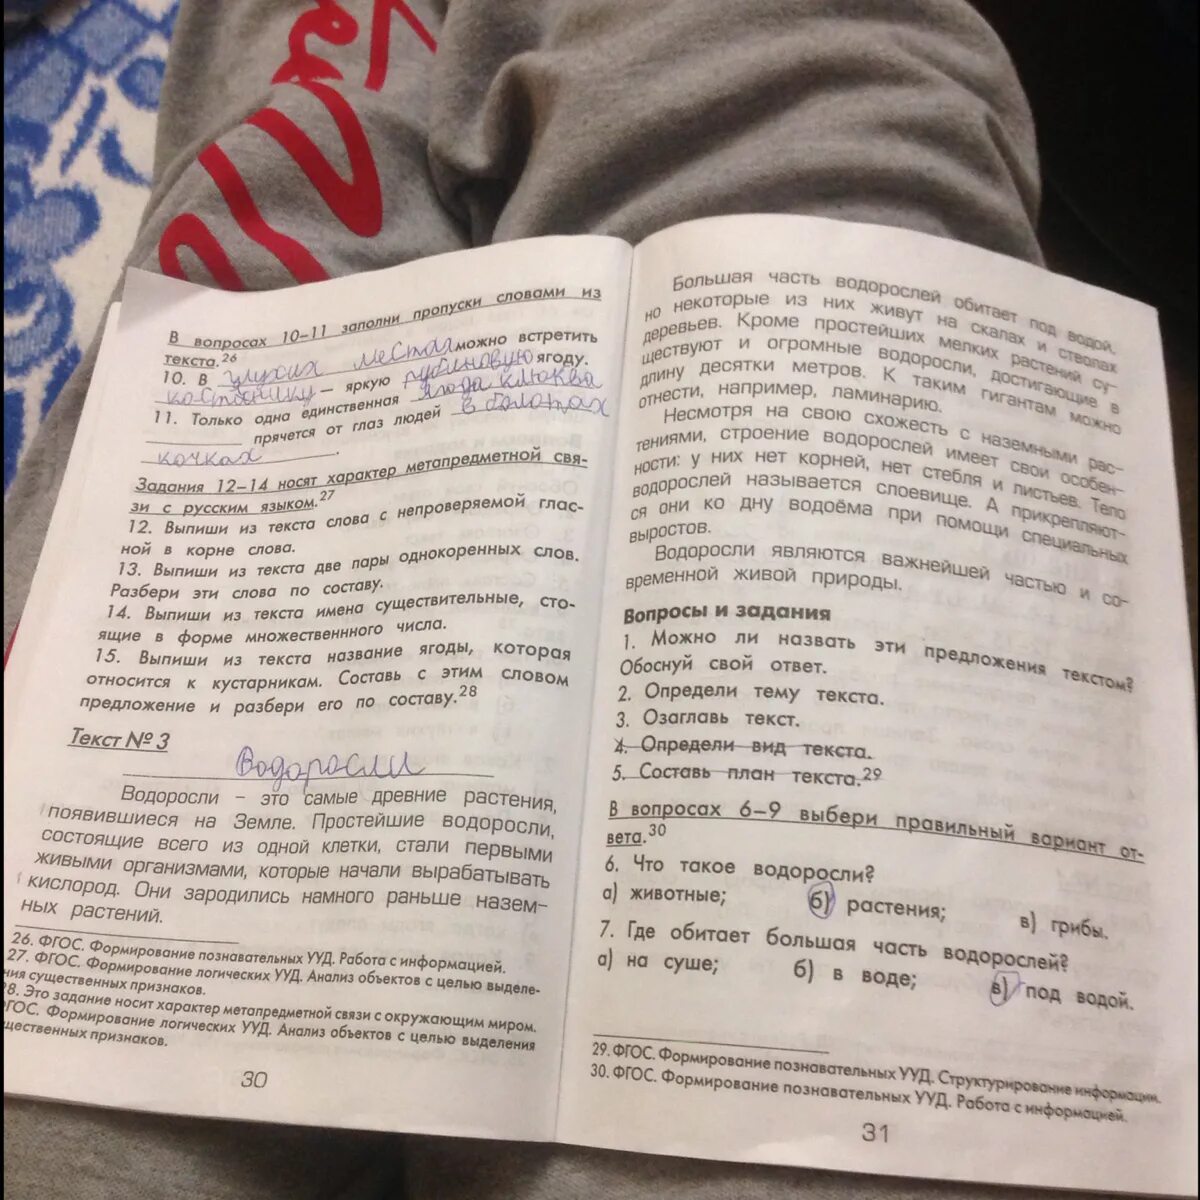 В вопросах 10–11 заполни пропуски словами из
текста.26
10. В глухих местах можно встретить
костянику — яркую рубиновую ягоду.
11. Только одна единственная ягода клюква
прячется от глаз людей в болотах
кочках.
Задания 12–14 носят характер метапредметной свя-
зи с русским языком.27
12. Выпиши из текста слова с непроверяемой глас-
ной в корне слова.
13. Выпиши из текста две пары однокоренных слов.
Разбери эти слова по составу.
14. Выпиши из текста имена существительные, сто-
ящие в форме множественнного числа.
15. Выпиши из текста название ягоды, которая
относится к кустарникам. Составь с этим словом
предложение и разбери его по составу.28
Текст № 3
Водоросли
Водоросли – это самые древние растения,
появившиеся на Земле. Простейшие водоросли,
состоящие всего из одной клетки, стали первыми
живыми организмами, которые начали вырабатывать
кислород. Они зародились намного раньше назем-
ных растений.
26. ФГОС. Формирование познавательных УУД. Работа с информацией.
27. ФГОС. Формирование логических УУД. Анализ объектов с целью выделе-
ния существенных признаков.
28. Это задание носит характер метапредметной связи с окружающим миром.
ФГОС. Формирование логических УУД. Анализ объектов с целью выделения
щественных признаков.
30
Большая часть водорослей обитает под водой,
но некоторые из них живут на скалах и стволах
деревьев. Кроме простейших мелких растений су-
ществуют и огромные водоросли, достигающие в
длину десятки метров. К таким гигантам можно
отнести, например, ламинарию.
Несмотря на свою схожесть с наземными рас-
тениями, строение водорослей имеет свои особен-
ности: у них нет корней, нет стебля и листьев. Тело
водорослей называется слоевище. А прикрепляют-
ся они ко дну водоёма при помощи специальных
выростов.
Водоросли являются важнейшей частью и со-
временной живой природы.
Вопросы и задания
1. Можно ли назвать эти предложения текстом?
Обоснуй свой ответ.
2. Определи тему текста.
3. Озаглавь текст.
4. Определи вид текста.
5. Составь план текста.29
В вопросах 6–9 выбери правильный вариант от-
вета.30
6. Что такое водоросли?
а) животные; б) растения; в) грибы.
7. Где обитает большая часть водорослей?
а) на суше; б) в воде; в) под водой.
29. ФГОС. Формирование познавательных УУД. Структурирование информации.
30. ФГОС. Формирование познавательных УУД. Работа с информацией.
31